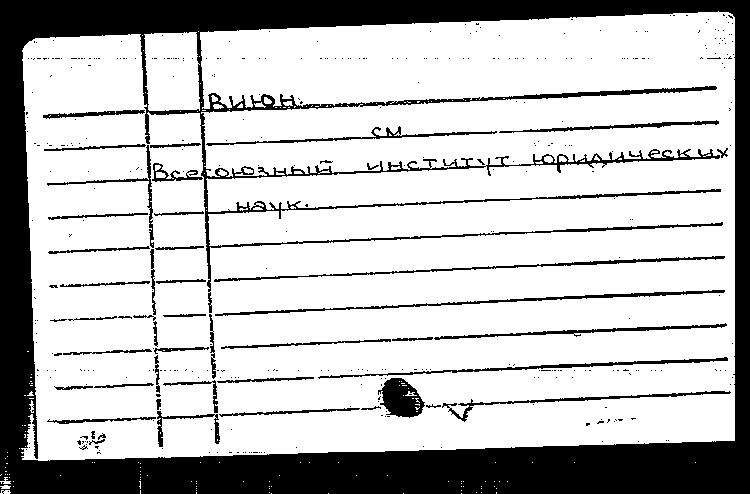 ВИЮН.
см
Всесоюзный институт юридических
наук.